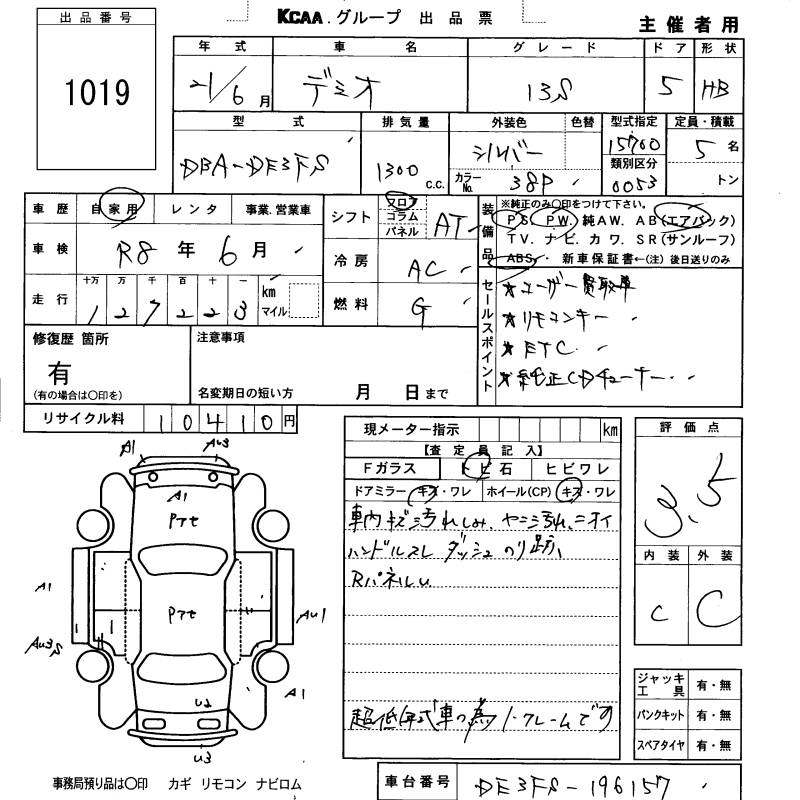 出品番号
1019
KCAA.グループ 出品票
主催者用
年式 車名 グレード ドア 形状
21/6月 デミオ 13S 5 HB
型式 排気量 外装色 色替 型式指定 定員・積載
DBA-DE3FS 1300 C.C. シルバー 15700 5名
カラーNo. 38P 類別区分 0053 トン
車歴 自家用 レンタ 事業.営業車
車検 R8年6月
走行 十万 万 千 百 十 一 km マイル
127223
シフト フロア コラム パネル AT
冷房 AC
燃料 G
装備品 ※純正のみ〇印をつけて下さい。
PS. PW. 純AW. AB(エアバック)
TV. ナビ. カワ. SR(サンルーフ)
ABS・ 新車保証書←(注)後日送りのみ
セールスポイント
★ユーザー買取車
★リモコンキー
★ETC
★純正CDチューナー
修復歴 箇所
有
(有の場合は〇印を)
注意事項
名変期日の短い方 月 日まで
リサイクル料 10410円
現メーター指示 km
【査定員記入】
Fガラス トビ石 ヒビワレ
ドアミラー キズ・ワレ ホイール(CP) キズ・ワレ
車内キズ汚れしみ、ヤニ汚れ、ニオイ
ハンドルスレ ダッシュのり跡、
RパネルU
超低年式車の為ノークレームです
評価点
3.5
内装 外装
C C
ジャッキ工具 有・無
パンクキット 有・無
スペアタイヤ 有・無
A1 AU3
A1
Pアセ
A1 Pアセ AU1
AU3S A1
U2
U3
事務局預り品は〇印 カギ リモコン ナビロム
車台番号 DE3FS-196157